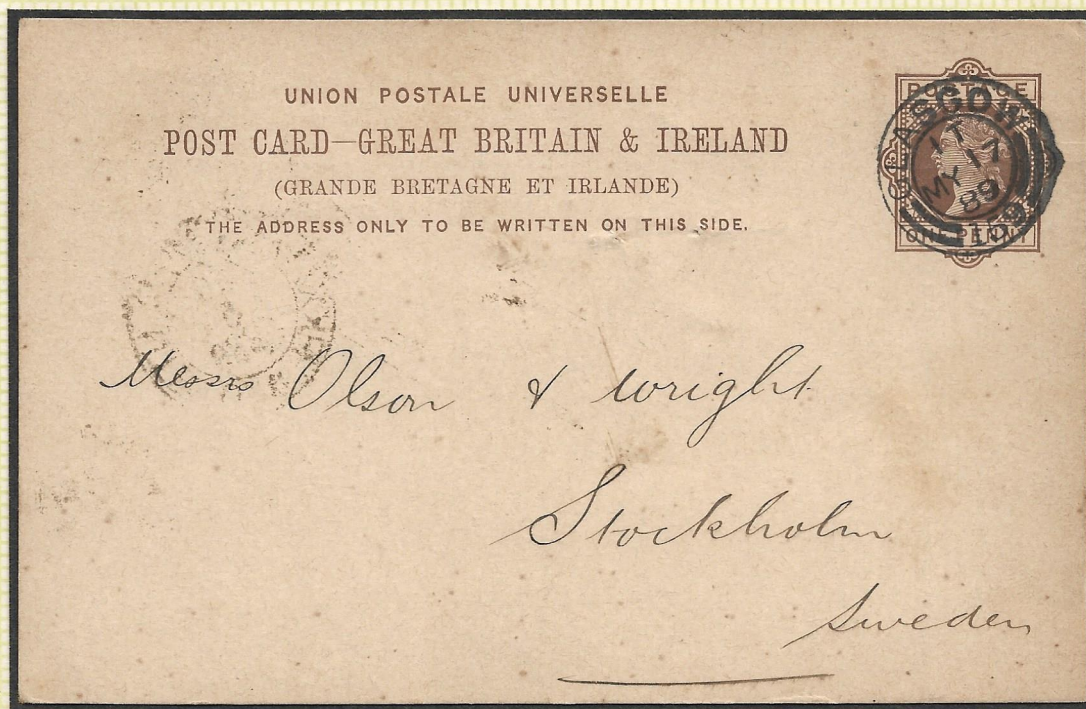 UNION POSTALE UNIVERSELLE
POST CARD—GREAT BRITAIN & IRELAND
(GRANDE BRETAGNE ET IRLANDE)
THE ADDRESS ONLY TO BE WRITTEN ON THIS SIDE.
POSTAGE
GLASGOW
MY 17
89
ONE PENNY
Messrs Olson & Wright
Stockholm
Sweden